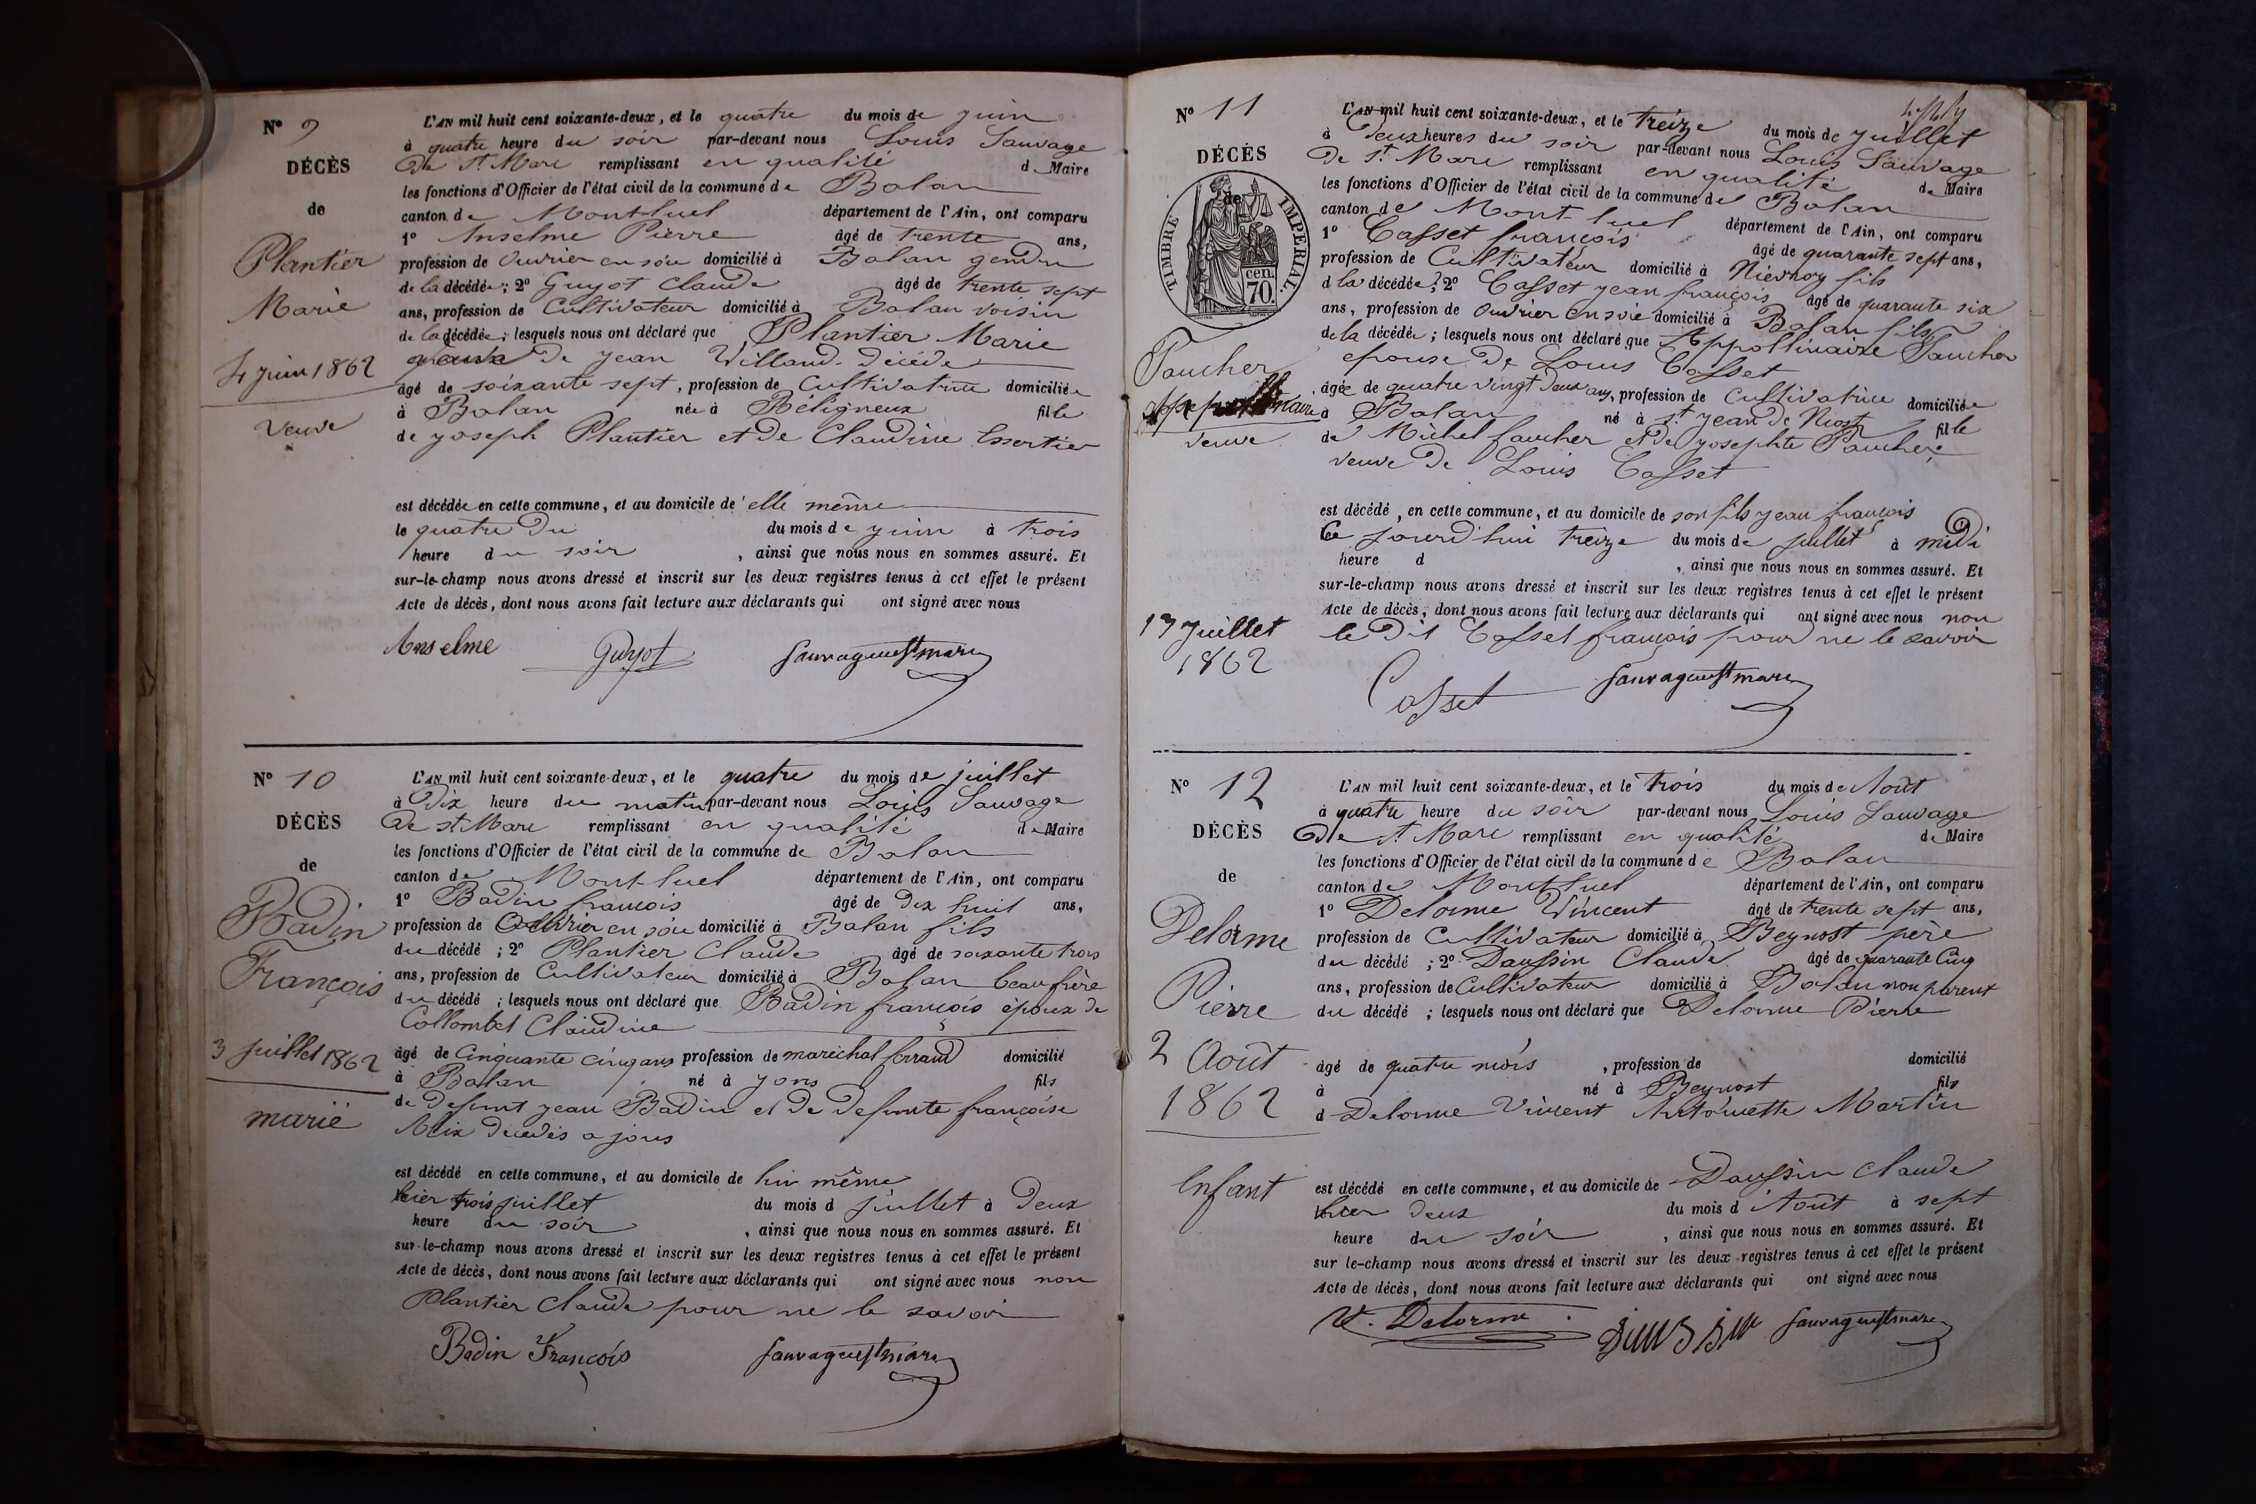 N° 9
DÉCÈS
de
Plantier
Marie
4 juin 1862
veuve
L'AN mil huit cent soixante-deux, et le quatre du mois de juin
à quatre heure du soir par-devant nous Louis Sauvage
De St Marc remplissant en qualité de Maire
les fonctions d'Officier de l'état civil de la commune de Balan
canton de Montluel département de l'Ain, ont comparu
1° Anselme Pierre âgé de trente ans,
profession de Ouvrier en soie domicilié à Balan gendre
de la décédée ; 2° Guyot Claude âgé de trente sept
ans, profession de Cultivateur domicilié à Balan voisin
de la décédée ; lesquels nous ont déclaré que Plantier Marie
veuve de jean Villand décédé
âgé de soixante sept, profession de Cultivatrice domiciliée
à Balan née à Béligneux fille
de joseph Plantier et de Claudine Essertier
est décédée en cette commune, et au domicile de elle même
le quatre du du mois de juin à trois
heure du soir, ainsi que nous nous en sommes assuré. Et
sur-le-champ nous avons dressé et inscrit sur les deux registres tenus à cet effet le présent
Acte de décès, dont nous avons fait lecture aux déclarants qui ont signé avec nous
Anselme Guyot Sauvage de St marc
N° 10
DÉCÈS
de
Badin
François
3 juillet 1862
marié
L'AN mil huit cent soixante-deux, et le quatre du mois de juillet
à Dix heure du matin par-devant nous Louis Sauvage
De St Marc remplissant en qualité de Maire
les fonctions d'Officier de l'état civil de la commune de Balan
canton de Montluel département de l'Ain, ont comparu
1° Badin françois âgé de dix huit ans,
profession de Ouvrier en soie domicilié à Balan fils
du décédé ; 2° Plantier Claude âgé de soixante trois
ans, profession de Cultivateur domicilié à Balan beau frère
du décédé ; lesquels nous ont déclaré que Badin françois époux de
Collombet Claudine
âgé de Cinquante cinq ans profession de maréchal ferrand domicilié
à Balan né à yons fils
de Defunt jean Badin et de Defunte françoise
Alix decedés a jons
est décédé en cette commune, et au domicile de lui même
hier trois juillet du mois d juillet à Deux
heure du soir, ainsi que nous nous en sommes assuré. Et
sur-le-champ nous avons dressé et inscrit sur les deux registres tenus à cet effet le présent
Acte de décès, dont nous avons fait lecture aux déclarants qui ont signé avec nous non
Plantier Claude pour ne le savoir
Badin François Sauvage de St marc
N° 11
DÉCÈS
de
TIMBRE IMPERIAL.
70. cen.
Faucher
veuve
13 Juillet
1862
L'AN mil huit cent soixante-deux, et le treize du mois de juillet
à Deux heures du soir par-devant nous Louis Sauvage
De St Marc remplissant en qualité de Maire
les fonctions d'Officier de l'état civil de la commune de Balan
canton de Montluel département de l'Ain, ont comparu
1° Cosset françois âgé de quarante sept ans,
profession de Cultivateur domicilié à Niévroz fils
d la décédée ; 2° Cosset jean françois âgé de quarante six
ans, profession de Ouvrier en soie domicilié à Balan fils
de la décédée ; lesquels nous ont déclaré que Appollinaire Faucher
epouse De Louis Cosset
âgée de quatre vingt deux ans, profession de Cultivatrice domiciliée
à Balan né à St jean de Niost fille
de Michel faucher et de josephte Faucher
veuve De Louis Cosset
est décédé, en cette commune, et au domicile de son fils jean françois
Ce jourd'hui treize du mois de juillet à midi
heure d, ainsi que nous nous en sommes assuré. Et
sur-le-champ nous avons dressé et inscrit sur les deux registres tenus à cet effet le présent
Acte de décès, dont nous avons fait lecture aux déclarants qui ont signé avec nous non
le Dit Cosset françois pour ne le savoir
Cosset Sauvage de St marc
N° 12
DÉCÈS
de
Delorme
Pierre
2 Août
1862
Enfant
L'AN mil huit cent soixante-deux, et le trois du mois de Août
à quatre heure du soir par-devant nous Louis Sauvage
De St Marc remplissant en qualité de Maire
les fonctions d'Officier de l'état civil de la commune de Balan
canton de Montluel département de l'Ain, ont comparu
1° Delorme Vincent âgé de trente sept ans,
profession de Cultivateur domicilié à Beynost père
du décédé ; 2° Daussin Claude âgé de quarante Cinq
ans, profession de Cultivateur domicilié à Balan non parent
du décédé ; lesquels nous ont déclaré que Delorme Pierre
âgé de quatre mois, profession de domicilié
à né à Beynost fils
d Delorme Vincent Antoinette Martin
est décédé en cette commune, et au domicile de Daussin Claude
hier deux du mois d Août à sept
heure du soir, ainsi que nous nous en sommes assuré. Et
sur-le-champ nous avons dressé et inscrit sur les deux registres tenus à cet effet le présent
Acte de décès, dont nous avons fait lecture aux déclarants qui ont signé avec nous
V. Delorme Daussin Sauvage de St marc